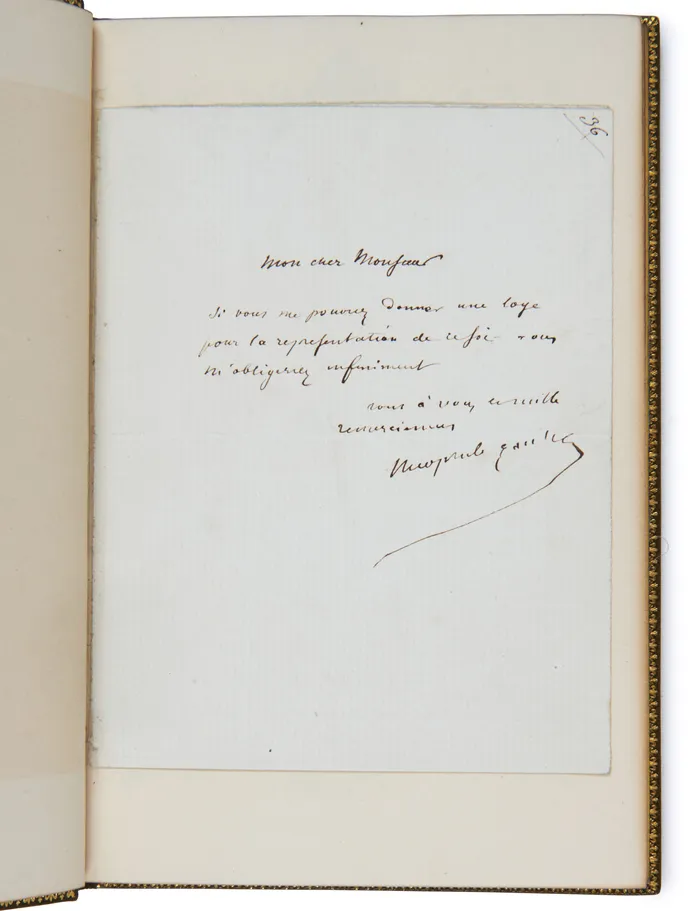 36
Mon cher Monsieur
Si vous me pouviez donner une loge
pour la representation de vous
m'obligeriez infiniment
tout à vous et mille
remerciemens
Theophile Gautier